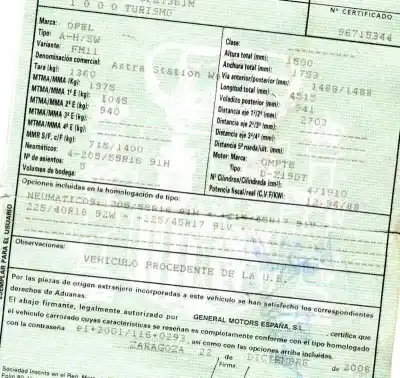 1000 TURISMO
Nº CERTIFICADO
96715344
Marca: OPEL
Tipo: A-H/SW
Variante: FM11
Denominación comercial: Astra Station
Tara (kg): 1360
MTMA/MMA (Kg): 1975
MTMA/MMA 1º E (kg): 1045
MTMA/MMA 2º E (kg): 940
MTMA/MMA 3º E (kg):
MTMA/MMA 4º E (kg):
MMR S/F, c/F (kg): 715/1400
Neumáticos: 4-205/55R16 91H
Nº de asientos: 5
Volumen de bodega:
Clase:
Altura total (mm): 1500
Anchura total (mm): 1753
Vía anterior/posterior (mm): 1488/1488
Longitud total (mm): 4515
Voladizo posterior (mm):
Distancia eje 1º/2º (mm): 2703
Distancia eje 2º/3º (mm):
Distancia eje 3º/4º (mm):
Distancia 5ª rueda/últ. (mm):
Motor: Marca: GMPTE
Tipo: D-Z19DT
Nº Cilindros/Cilindrada (cm³): 4/1910
Potencia fiscal/real (C.V.F/KW):
Opciones incluidas en la homologación de tipo:
NEUMATICOS:
225/40R18 92W + +225/45R17 91V
Observaciones:
VEHICULO PROCEDENTE DE LA U.E.
EJEMPLAR PARA EL USUARIO
Por las piezas de origen extranjero incorporadas a este vehículo se han satisfecho los correspondientes
derechos de Aduanas.
El abajo firmante, legalmente autorizado por GENERAL MOTORS ESPAÑA, S.L. , certifica que
el vehículo carrozado cuyas características se reseñan es completamente conforme con el tipo homologado
con la contraseña e1*2001/116*0293 , así como con las opciones arriba incluidas.
ZARAGOZA 22 de DICIEMBRE de 2006
Firma: